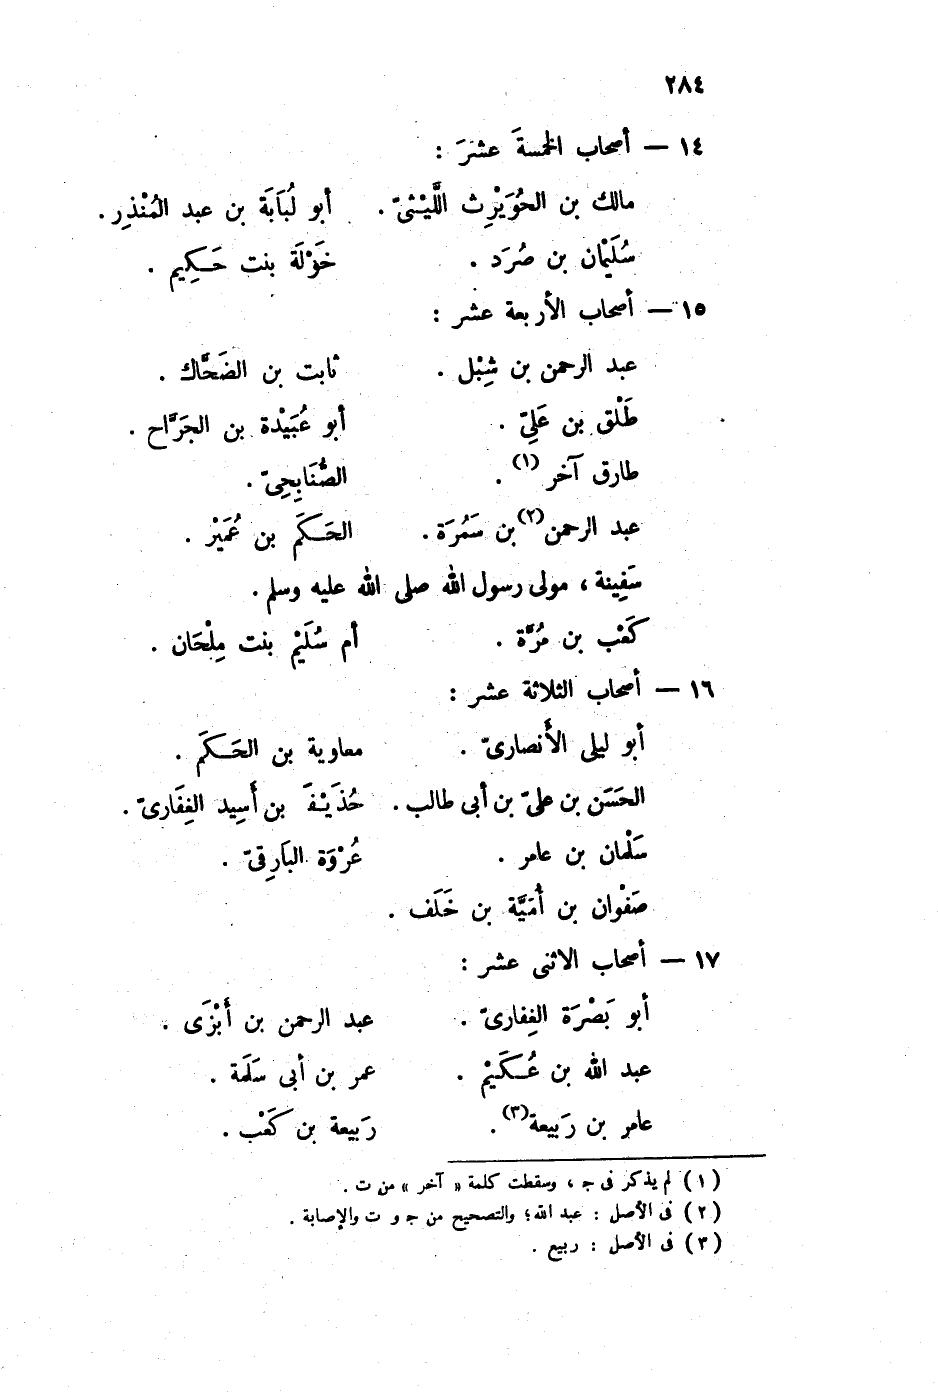 ٢٨٤
١٤ — أصحاب الخمسةَ عشرَ :
مالك بن الحُوَيْرِث اللَّيْثىّ . أبو لُبَابَة بن عبد المُنْذِر .
سُلَيْمان بن صُرَد . خَوْلَة بنت حَكِيم .
١٥ — أصحاب الأربعة عشر :
عبد الرحمن بن شِبْل . ثابت بن الضَحَّاك .
طَلْق بن عَلِىّ . أبو عُبَيْدة بن الجَرَّاح .
طارق آخر (١) . الصُّنَابِحِىّ .
عبد الرحمن (٢) بن سَمُرَة . الحَكَم بن عُمَيْر .
سَفِينة ، مولى رسول الله صلى الله عليه وسلم .
كَعْب بن مُرَّة . أم سُلَيْم بنت مِلْحَان .
١٦ — أصحاب الثلاثة عشر :
أبو ليلى الأَنصارىّ . معاوية بن الحَكَم .
الحَسَن بن علىّ بن أبى طالب . حُذَيْفَـ بن أَسِيد الغِفَارىّ .
سَلْمان بن عامر . عُرْوَة البَارِقىّ .
صَفْوان بن أُمَيَّة بن خَلَف .
١٧ — أصحاب الاثنى عشر :
أبو بَصْرَة الغِفارىّ . عبد الرحمن بن أَبْزَى .
عبد الله بن عُكَيْم . عمر بن أبى سَلَمة .
عامر بن رَبيعة (٣) . رَبيعة بن كَعْب .
(١) لم يذكر فى جـ ، وسقطت كلمة « آخر » من ت .
(٢) فى الأصل : عبد الله؛ والتصحيح من جـ و ت والإصابة .
(٣) فى الأصل : ربيع .